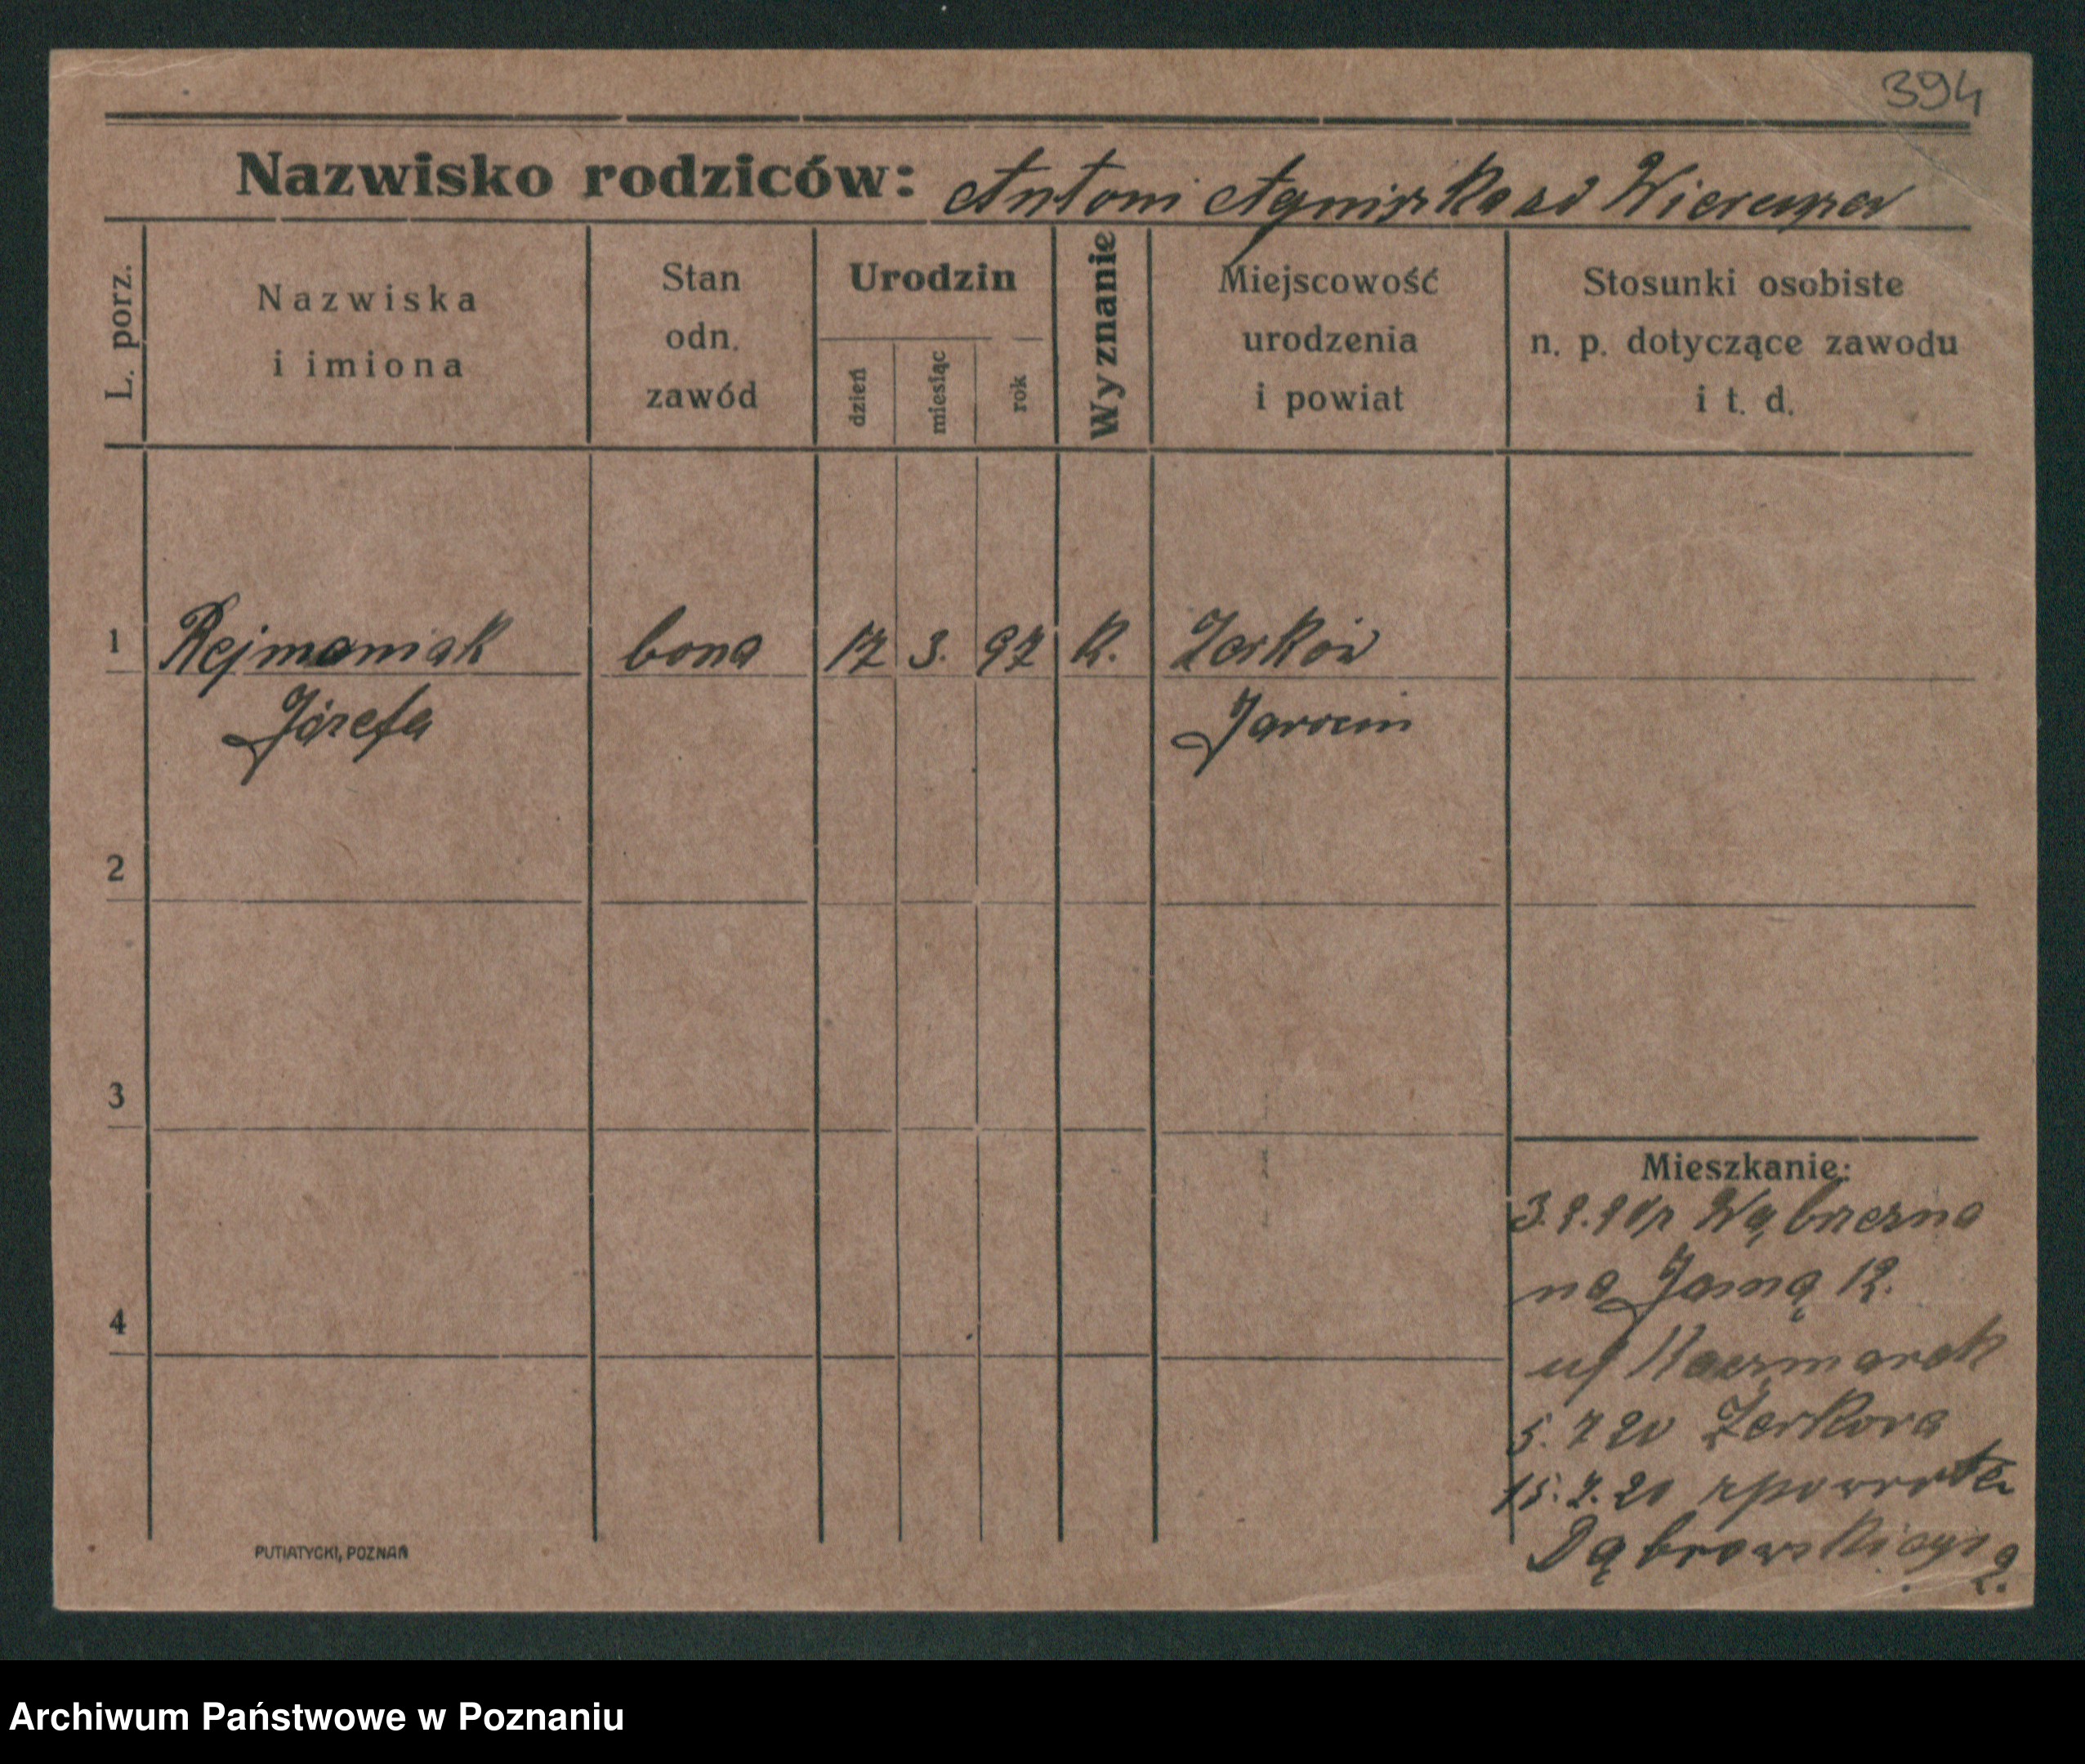 394
Nazwisko rodziców: Antoni Agniszka sd Wieruzew
L. porz.
Nazwiska
i imiona
Stan
odn.
zawód
Urodzin
dzień
miesiąc
rok
Wyznanie
Miejscowość
urodzenia
i powiat
Stosunki osobiste
n. p. dotyczące zawodu
i t. d.
1 Rejmaniak bona 17 3. 97 K. Żerków
Józefa Jarocin
2
3
4
Mieszkanie:
Wąbrzezna
na Jasną 12.
Kaczmarek
5. 7 20 Żerkowa
15. 7. 20 zpowrotem
Dąbrowskiego 2.
PUTIATYCKI, POZNAŃ
Archiwum Państwowe w Poznaniu